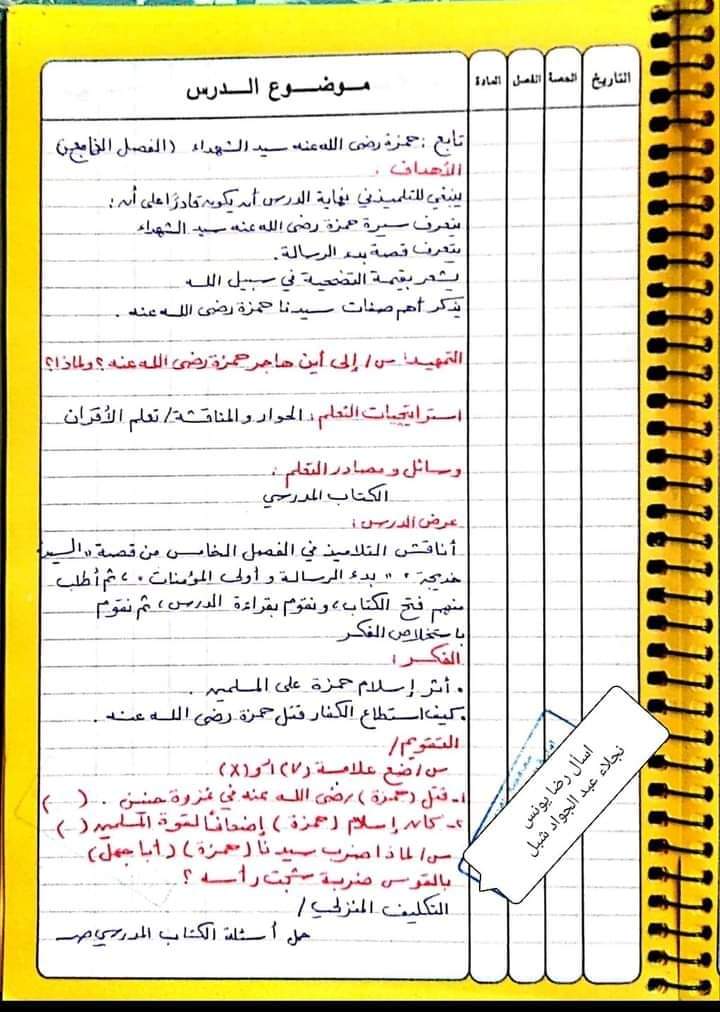 التاريخ الحصة الفصل المادة موضوع الدرس
تابع : حمزة رضى الله عنه سيد الشهداء (الفصل الخامس)
الأهداف :
ينبغي للتلميذ في نهاية الدرس أن يكون قادرًا على أن :
يتعرف سيرة حمزة رضى الله عنه سيد الشهداء
يتعرف قصة بدء الرسالة .
يشعر بقيمة التضحية في سبيل الله
يذكر أهم صفات سيدنا حمزة رضى الله عنه .
التمهيد : س/ إلى أين هاجر حمزة رضى الله عنه ؟ ولماذا ؟
استراتيجيات التعلم : الحوار والمناقشة / تعلم الأقران
وسائل ومصادر التعلم :
الكتاب المدرسي
عرض الدرس :
أناقش التلاميذ في الفصل الخامس من قصة " السيدة
خديجة " " بدء الرسالة و أولى المؤمنات " ، ثم أطلب
منهم فتح الكتاب ، ونقوم بقراءة الدرس ، ثم نقوم
باستخلاص الفكر
الفكر :
• أثر إسلام حمزة على المسلمين .
• كيف استطاع الكفار قتل حمزة رضى الله عنه .
التقويم /
س/ ضع علامة (√) أو (X)
١- قتل (حمزة) رضى الله عنه في غزوة حنين . ( )
٢- كان إسلام (حمزة) إضعافًا لقوة المسلمين ( )
س/ لماذا ضرب سيدنا (حمزة) (أبا جهل)
بالقوس ضربة شجت رأسه ؟
التكليف المنزلي /
حل أسئلة الكتاب المدرسي صـ
نجلاء عبد الجواد شبل